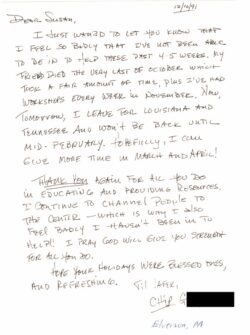 12/12/91
Dear Susan,
I just wanted to let you know that
I feel so badly that I've not been able
to be in to help these past 4-5 weeks. My
friend died the very last of October which
took a fair amount of time, plus I've had
workshops every week in November. Now,
tomorrow, I leave for Louisiana and
Tennessee and won't be back until
mid-February. Hopefully, I can
give more time in March and April!
Thank you again for all you do
in educating and providing resources.
I continue to channel people to
the Center – which is why I also
feel badly I haven't been in to
help! I pray God will give you strength
for all you do.
Hope your holidays were blessed ones,
and refreshing.
Chip G
Elverson, PA